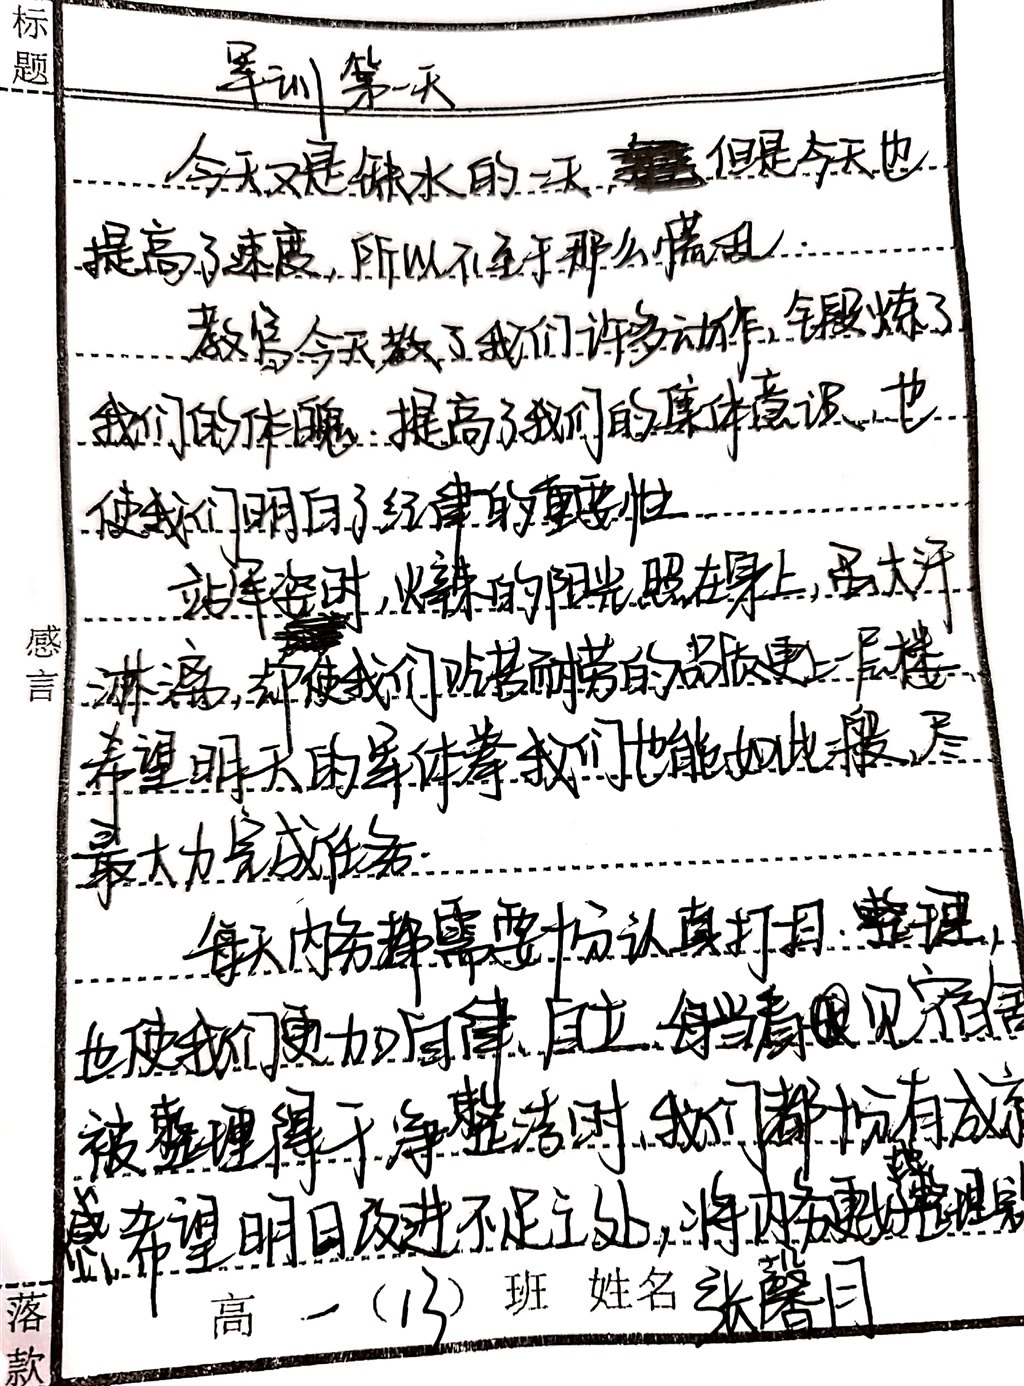 标题
军训第一天
今天又是缺水的一天，但是今天也
提高了速度，所以不至于那么慌乱．
教官今天教了我们许多动作，锻炼了
我们的体魄．提高了我们的集体意识，也
使我们明白了纪律的重要性
站军姿时，火辣的阳光照在身上，虽大汗
淋漓，却使我们吃苦耐劳的品质更上一层楼
希望明天的军体拳我们也能如此般，尽
最大力完成任务．
每天内务都需要十份认真打扫．整理，
也使我们更加自律、自立．每当看见宿舍
被整理得干净整洁时，我们都十份有成就
感，希望明日改进不足之处，将内务更好整理
感言
落款
高一（13）班 姓名 张馨月